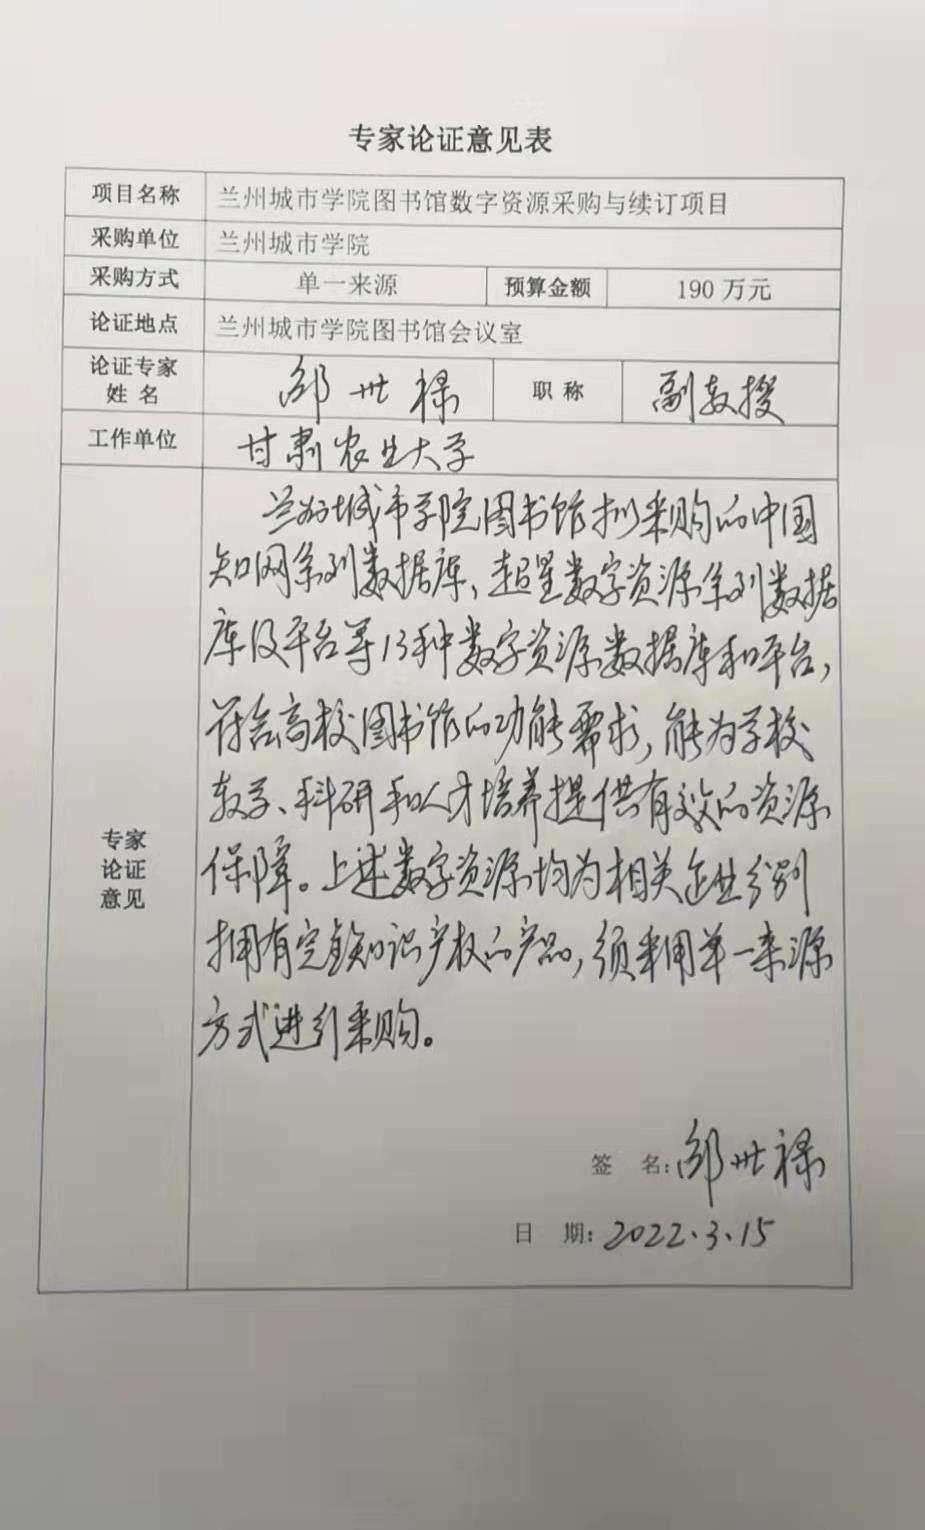 专家论证意见表
项目名称 兰州城市学院图书馆数字资源采购与续订项目
采购单位 兰州城市学院
采购方式 单一来源 预算金额 190 万元
论证地点 兰州城市学院图书馆会议室
论证专家
姓 名 邵世禄 职 称 副教授
工作单位 甘肃农业大学
专家
论证
意见
兰州城市学院图书馆拟采购的中国
知网系列数据库、超星数字资源系列数据
库及平台等13种数字资源数据库和平台,
符合高校图书馆的功能需求,能为学校
教学、科研和人才培养提供有效的资源
保障。上述数字资源均为相关企业分别
拥有完全知识产权的产品,须采用单一来源
方式进行采购。
签 名:邵世禄
日 期:2022.3.15